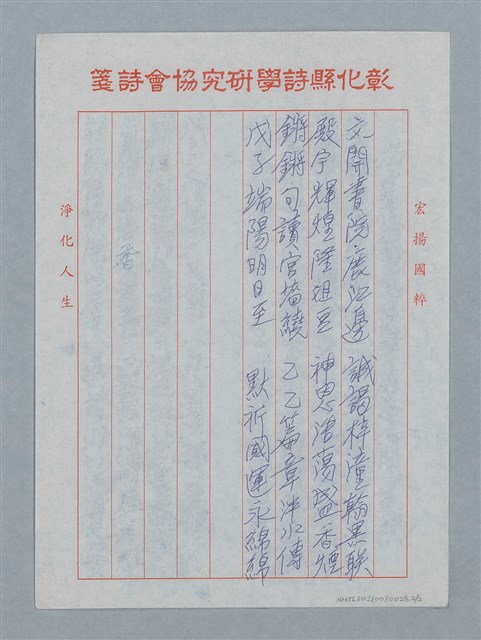 彰化縣詩學研究協會詩箋
宏揚國粹
文開書院鹿江邊 誠謁梓潼翰墨联
殿宇輝煌隆俎豆 神恩浩蕩盛香煙
鏘鏘句讀宮墻繞 乙乙篇章泮水傳
戊子端陽明日至 默祈國運永綿綿
香
淨化人生